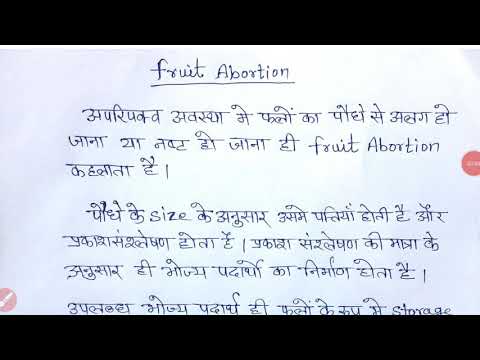 fruit Abortion
अपरिपक्व अवस्था मे फलों का पौधे से अलग हो
जाना या नष्ट हो जाना ही fruit Abortion
कहलाता है।
पौधे के size के अनुसार उसमे पत्तियाँ होती है और
प्रकाशसंश्लेषण होता है। प्रकाश संश्लेषण की मात्रा के
अनुसार ही भोज्य पदार्थो का निर्माण होता है।
उपलब्ध भोज्य पदार्थ ही फलों के रूप मे storage